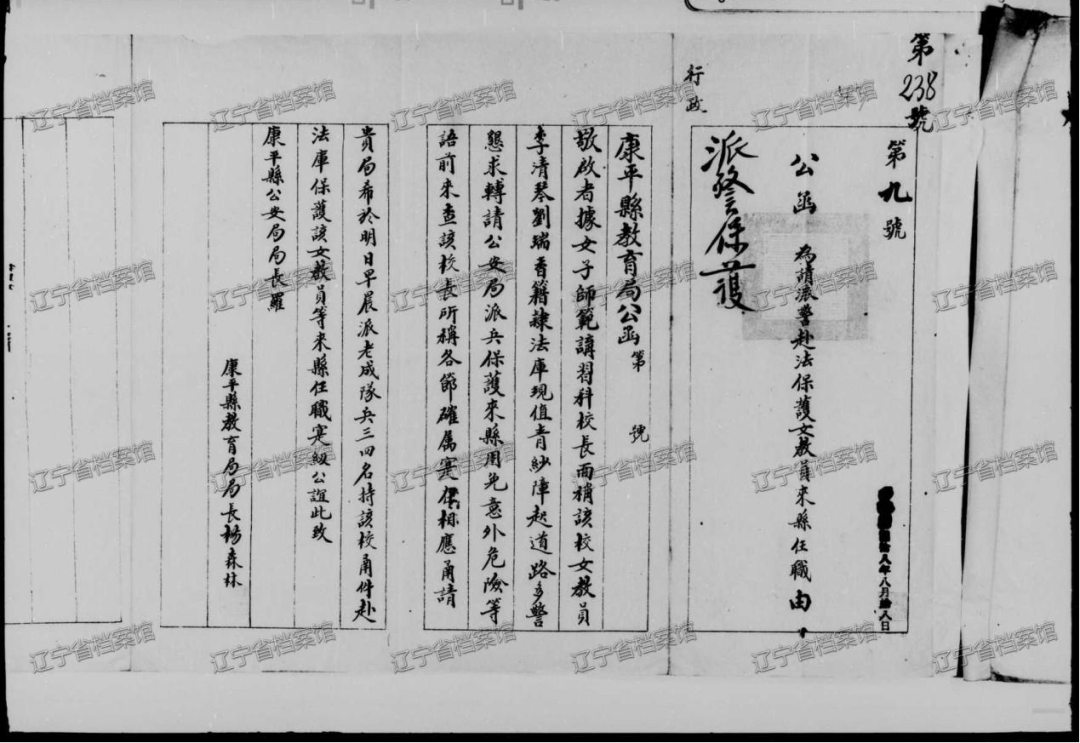 第238號
第九號
公函 為請派警赴法保護女教員來縣任職由
八年八月拾八日
行政
派警保護
康平縣教育局公函 第 號
敬啟者據女子師範講習科校長面稱該校女教員
李清琴劉瑞香籍隸法庫現值青紗障起道路多警
懇求轉請公安局派兵保護來縣用免意外危險等
語前來查該校長所稱各節確属寔情相應函請
貴局希於明日早晨派老成隊兵三四名持該校函件赴
法庫保護該女教員等來縣任職寔紉公誼此致
康平縣公安局局長羅
康平縣教育局局長楊森林
辽宁省档案馆